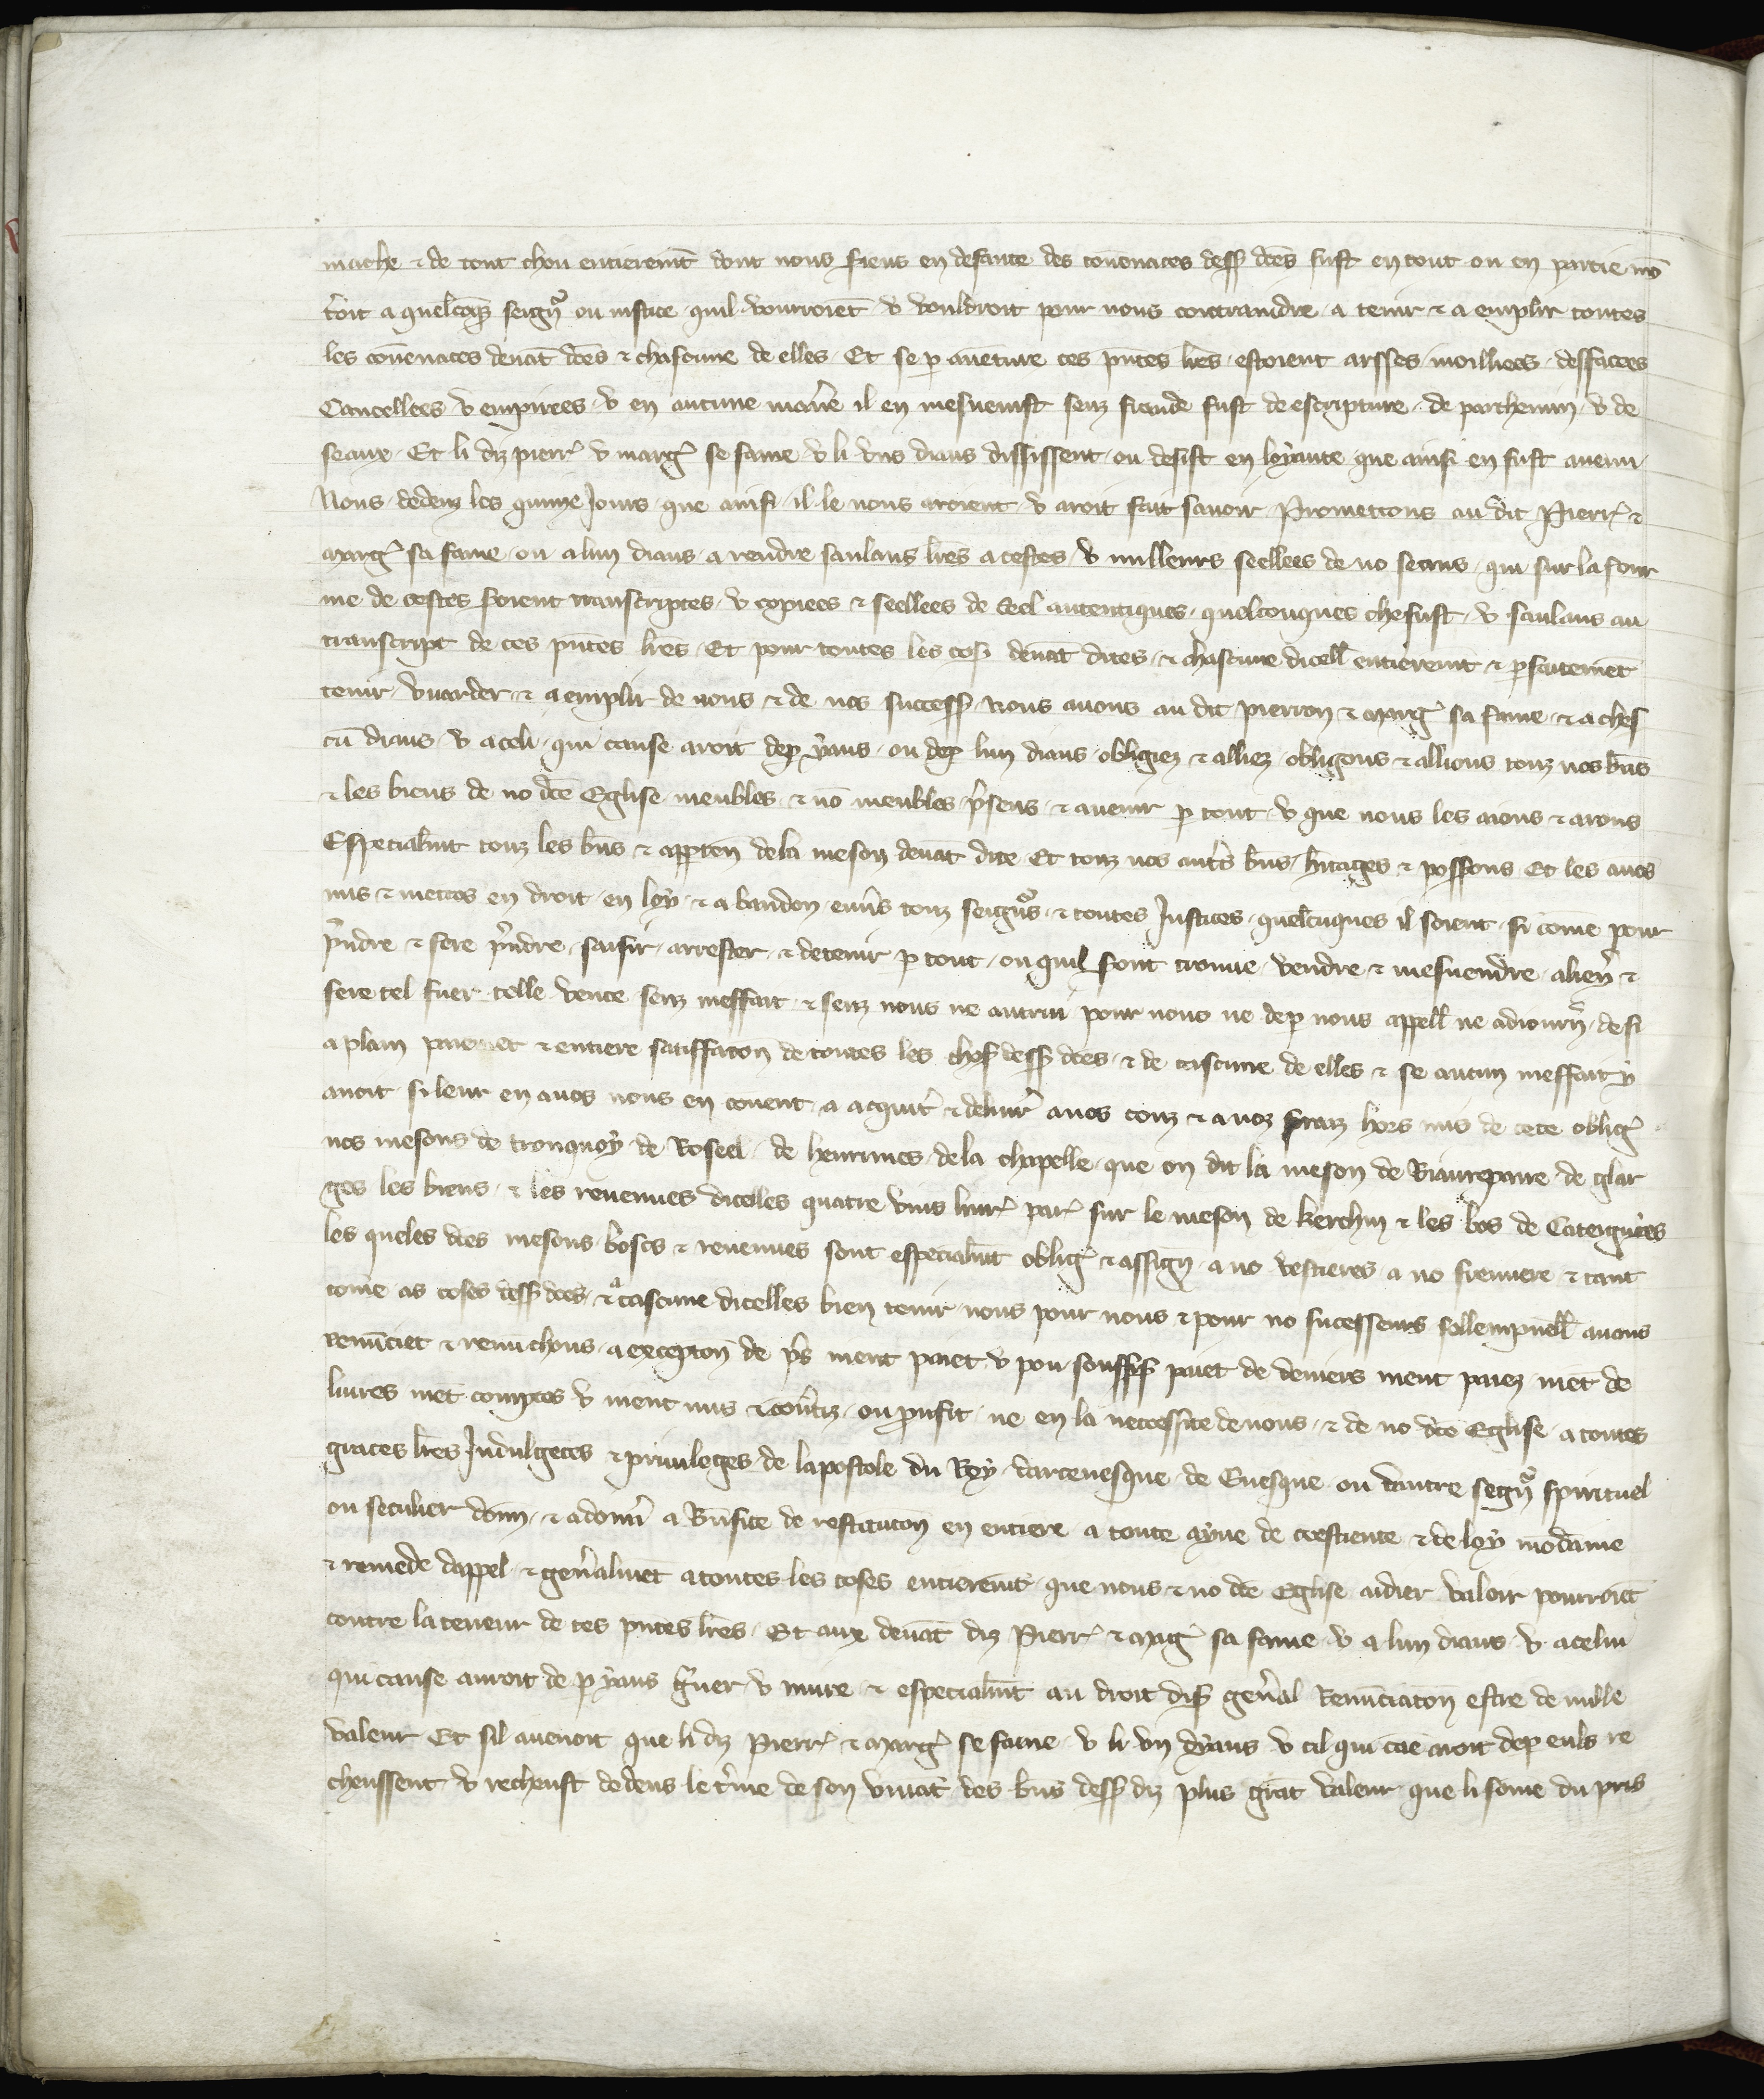 mache & de tout chou entieremt dont nous fiens en defaute des couenaces dess dces fust en tout ou en partie mō
t'oit a quelcoq̄s seign᷑ ou iustice quil vourroiēt v vouldroit pour nous contraindre a tenir & a emplir toutes
les couenaces deuāt dces & chascune de elles Et se ꝑ auēture ces p̄ntes lr̄es estoient arsses moilliees deffacees
Cancellees v empirees v en aucune man̄e il en mesuenist senz fraude fust de escripture de parchemin v de
seaux Et li diz pierr̄ v marg᷑ se fame v li vns diaus dissisent ou desist en loyaute que ainsi en fust auenu
Nous dedenz les quinze Jours que ainsi il le nous aroient v aroit fait sauoir Promettons au dit Pierr̄ &
Marg᷑ sa fame ou a lun diaus a rendre saulaus lr̄es a cestes v milleurs seellees de no seaus qui sur la four
me de cestes soient transcriptes v copiees & seellees de Seel autentiques quelconques che fust v saulaus au
transcript de ces p̄ntes lr̄es Et pour toutes les cos deuāt dites & chascune dicell entieremt & ꝑfaitemēt
tenir vuarder & a emplir de nous & de nos success Nous auons au dit pierron & Marg᷑ sa fame & a ches
cū diaus v a celi qui cause aroit deꝑ yaus ou deꝑ lun diaus obligiez & alliez obligons & allions touz nos bn̄s
& les biens de no dc̄e Eglise meubles & nō meubles p̄sens & auenir ꝑ tout v que nous les aions & arons
Especialmt touz les bn̄s & apptēn de la meson deuāt dite Et touz nos autres bn̄s hritages & possons Et les auōs
mis & metōs en droit en loy & a bandon enuers touz seign᷑s & toutes Justices quelcūques il soient si cōme pour
p̄ndre & fere p̄ndre saisir arrester & detenir ꝑ tout ou quil sont trouue vendre & mesuendre alien̄ &
fere tel fuer telle vente senz meffait & senz nous ne autrui pour nous ne deꝑ nous appell ne adiourn̄ de si
a plain paiemēt & entiere satiffacon de toutes les chos dess dces & de cascune de elles & se aucun meffait y
auoit si leur en auōs nous en couent a acquit' & deliur' a nos couz & a noz fraiz hors mis de cete oblig᷑
nos mesons de tronquoy de Roseel de heurtines de la chapelle que on dit la meson de Biaurepaire de glar
ges les biens & les reuenues dicelles quatre vins liur̄ par̄ sur le meson de kerchin & les bos de Cateignies
les queles dces mesons boscs & reuenues sont especialmt oblig᷑ & assign a no vestieres a no fremiere & tant
cōme as coses dess dces & a cascune dicelles bien tenir nous pour nous & pour no successeurs sollempnell auons
renūciet & renuchons a excepton de p̄s ment paiet v pou souffis paiet de deniers ment paiez mēt de
liures mēt comptes v ment mis & cōuertiz ou proufit ne en la neccessite de nous & de no dce Eglise a toutes
graces lr̄es Indulgeces & priuileges de lapostole du Roy darceuesque de Euesque ou dautre segn᷑ spirituel
ou seculier dōnn & a donn̄ a Bn̄fice de restituton en entiere a toute ayue de crestiente & de loy mōdaine
& remede dappel & gen̄almēt a toutes les coses entieremt que nous & no dce Eglise aidier valoir pourroiēt
contre la teneur de ces p̄ntes lr̄es Et aux deuāt diz Pierr̄ & Marg᷑ sa fame v a lun diaus v a celui
qui cause auroit de ꝑ yaus greuer v nuire & especialmt au droit dis gen̄al Renūciaton estre de nulle
valeur Et sil auenoit que li diz Pierr̄ & Marg᷑ se fame v li vn dyaus v cil qui cāe aroit deꝑ euls re
cheussent v recheust dedens le t'me de son viuāt des bn̄s dess diz plus grāt valeur que li some du pris